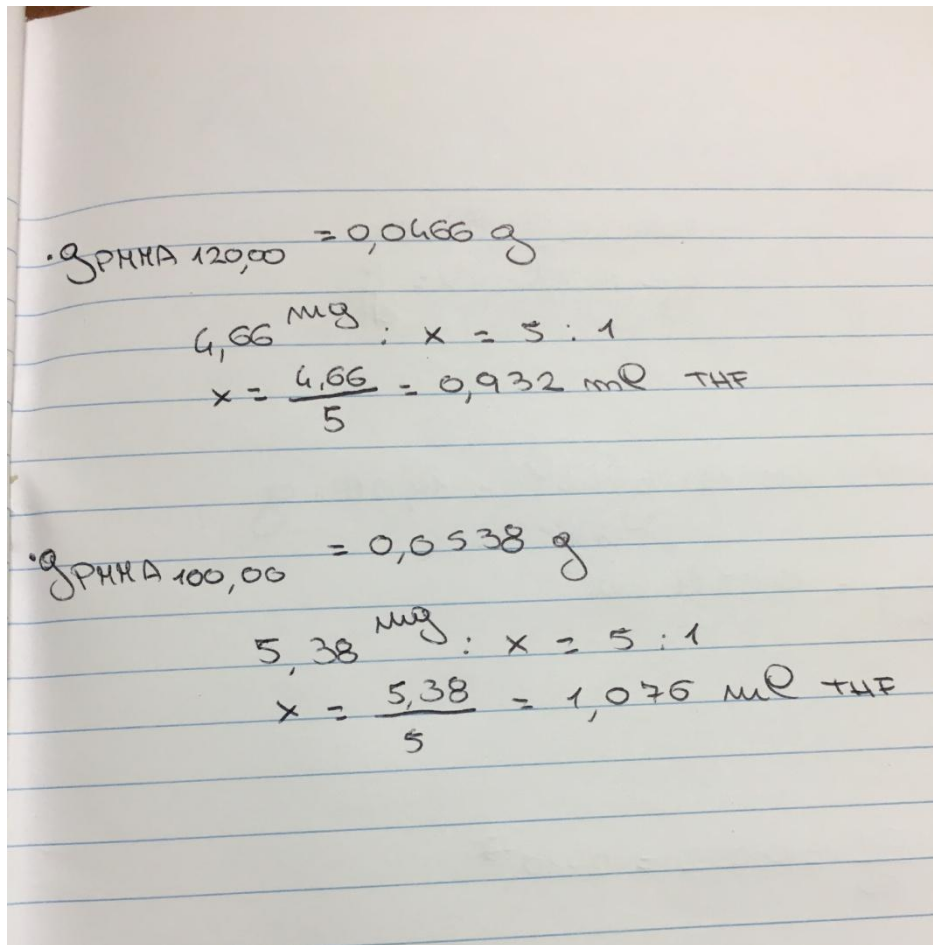 ·g PMMA 120,00 = 0,0466 g
4,66 mg : x = 5 : 1
x = 4,66 / 5 = 0,932 ml THF
·g PMMA 100,00 = 0,0538 g
5,38 mg : x = 5 : 1
x = 5,38 / 5 = 1,076 ml THF